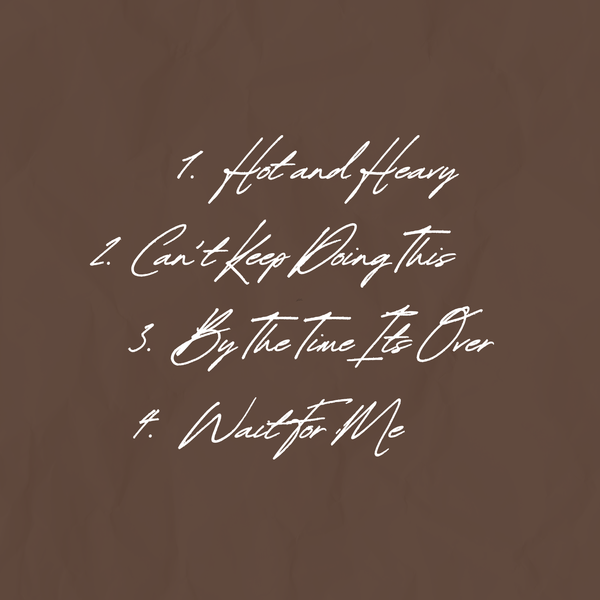 1. Hot and Heavy
2. Can't Keep Doing This
3. By The Time Its Over
4. Wait For Me